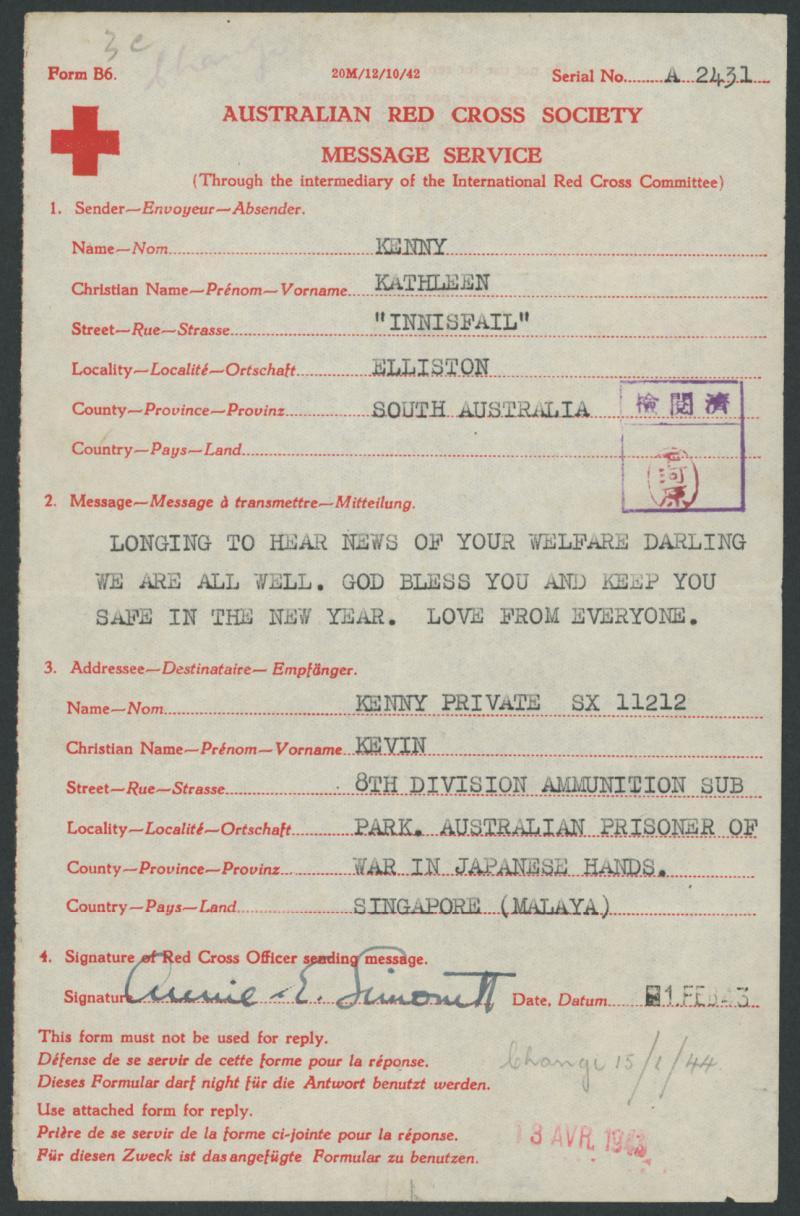 3c Changi
Form B6.
20M/12/10/42
Serial No. A 2431
AUSTRALIAN RED CROSS SOCIETY
MESSAGE SERVICE
(Through the intermediary of the International Red Cross Committee)
1. Sender—Envoyeur—Absender.
Name—Nom KENNY
Christian Name—Prénom—Vorname KATHLEEN
Street—Rue—Strasse "INNISFAIL"
Locality—Localité—Ortschaft ELLISTON
County—Province—Provinz SOUTH AUSTRALIA
檢閲濟
Country—Pays—Land
河原
2. Message—Message à transmettre—Mitteilung.
LONGING TO HEAR NEWS OF YOUR WELFARE DARLING
WE ARE ALL WELL. GOD BLESS YOU AND KEEP YOU
SAFE IN THE NEW YEAR. LOVE FROM EVERYONE.
3. Addressee—Destinataire—Empfänger.
Name—Nom KENNY PRIVATE SX 11212
Christian Name—Prénom—Vorname KEVIN
Street—Rue—Strasse 8TH DIVISION AMMUNITION SUB
Locality—Localité—Ortschaft PARK. AUSTRALIAN PRISONER OF
County—Province—Provinz WAR IN JAPANESE HANDS.
Country—Pays—Land SINGAPORE (MALAYA)
4. Signature of Red Cross Officer sending message.
Signature Annie E. Date, Datum 1 FEB 43
This form must not be used for reply.
Défense de se servir de cette forme pour la réponse.
Dieses Formular darf night für die Antwort benutzt werden.
Changi 15/1/44
Use attached form for reply.
Prière de se servir de la forme ci-jointe pour la réponse.
13 AVR. 1943
Für diesen Zweck ist das angefügte Formular zu benutzen.